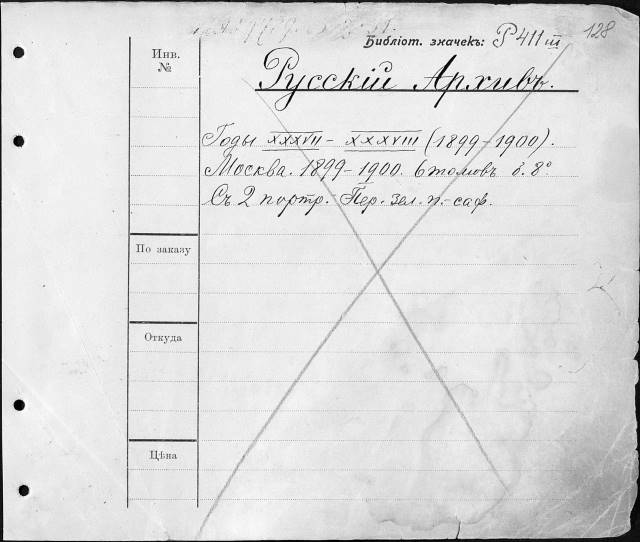 128
Библіот. значекъ: Р 411 III
Инв. №
Русскій Архивъ.
Годы XXXVII – XXXVIII (1899-1900).
Москва. 1899-1900. 6 томовъ б. 8°
Съ 2 портр. Пер. зел. п.-саф.
По заказу
Откуда
Цѣна